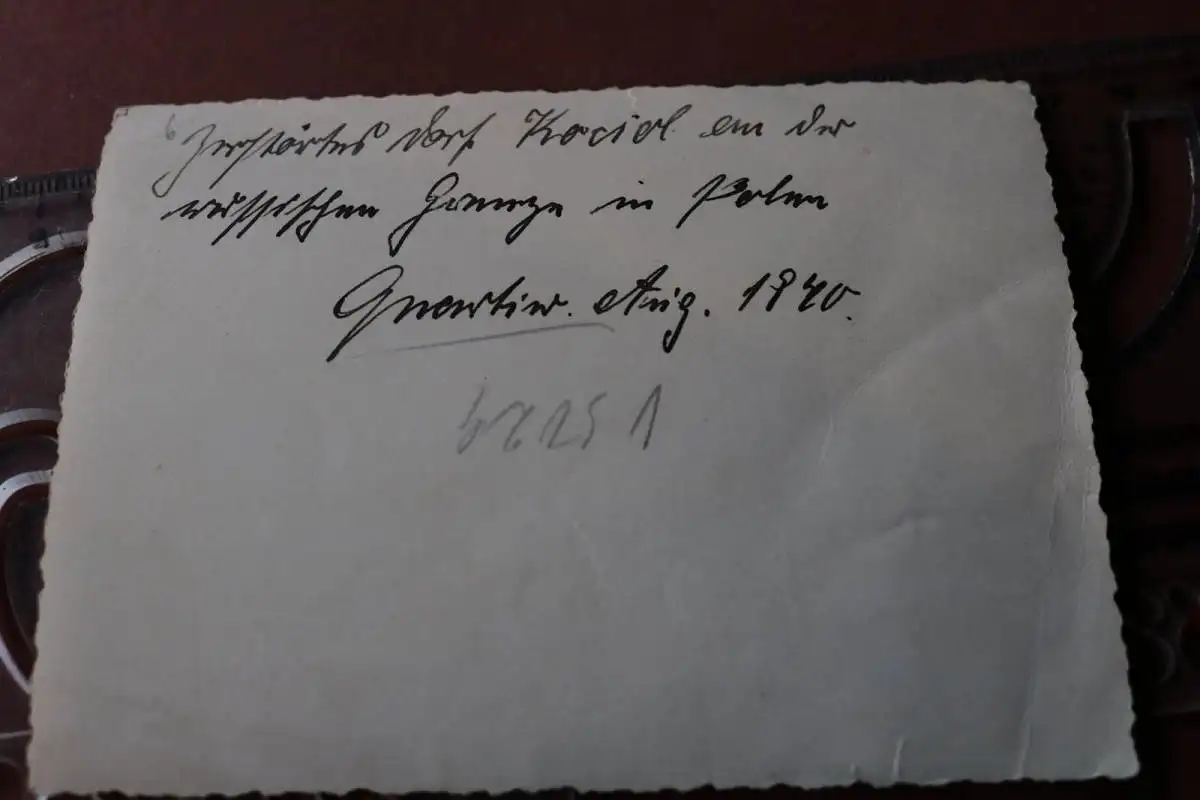 Zerstörtes Dorf Kociol an der
russischen Grenze in Polen
Quartier. Aug. 1940.